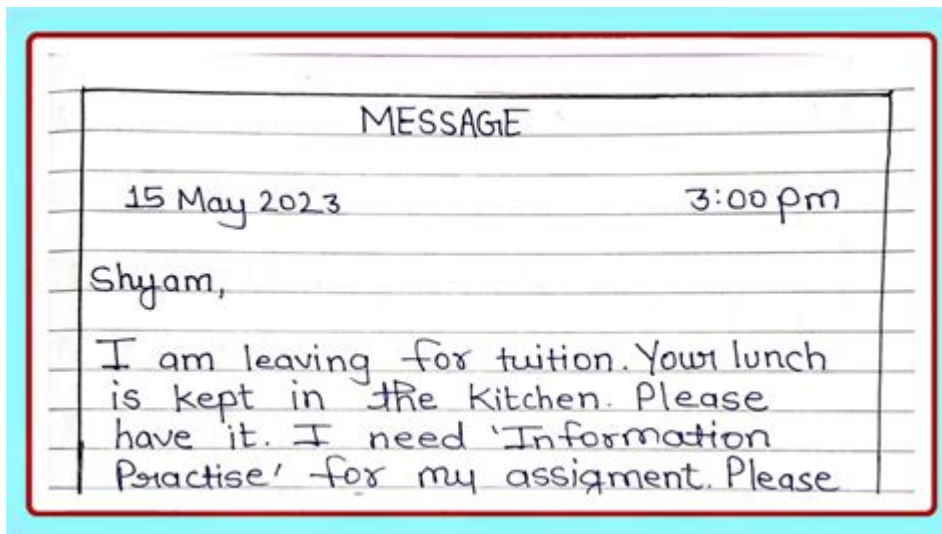 MESSAGE
15 May 2023 3:00 pm
Shyam,
I am leaving for tuition. Your lunch
is kept in the kitchen. Please
have it. I need 'Information
Practise' for my assigment. Please